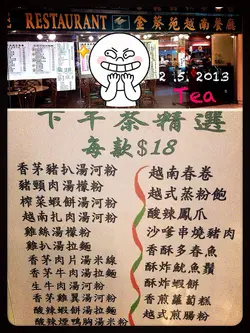 RESTAURANT 金葵苑越南餐廳
2.5.2013
Tea
下午茶精選
每款$18
香茅豬扒湯河粉
豬頸肉湯檬粉
榨菜蝦餅湯河粉
越南扎肉湯河粉
雞絲湯檬粉
雞扒湯拉麵
香茅肉片湯米線
香茅牛肉湯拉麵
生牛肉湯河粉
香茅雞翼湯河粉
酸辣蝦餅湯河粉
酸辣煙鴨胸湯米線
越南春卷
越式蒸粉飽
酸辣鳳爪
沙爹串燒豬肉
香酥多春魚
酥炸魷魚鬚
酥炸蝦餅
香煎蘿蔔糕
越式煎腸粉